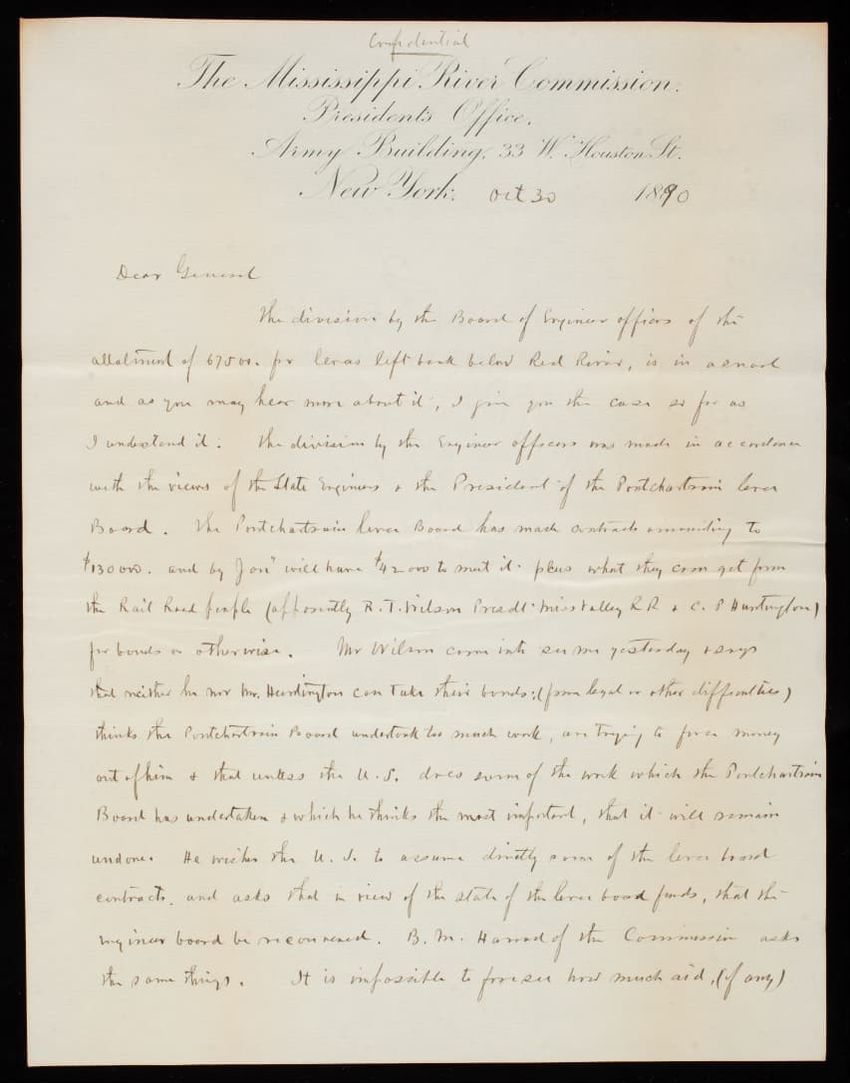 Confidential
The Mississippi River Commission.
President's Office.
Army Building, 33 W. Houston St.
New York. Oct 30 1890
Dear General
The division by the Board of Engineer officers of the
allotment of 67500. for levees left bank below Red River, is in a snarl
and as you may hear more about it, I give you the case so far as
I understand it. The division by the Engineer officers was made in accordance
with the views of the State Engineers & the President of the Pontchartrain levee
Board. The Pontchartrain levee Board has made contracts amounting to
$130000. and by Jany will have $42000 to meet it plus what they can get from
the Rail Road people (apparently R. T. Wilson Presdt Miss Valley R R & C. P Huntington)
for bonds or otherwise. Mr Wilson came into see me yesterday & says
that neither he nor Mr. Huntington can take their bonds; (from legal or other difficulties)
thinks the Pontchartrain Board undertook too much work, are trying to force money
out of him & that unless the U.S. does some of the work which the Pontchartrain
Board has undertaken & which he thinks the most important, that it will remain
undone. He wishes the U. S. to assume directly some of the levee board
contracts, and asks that in view of the state of the levee board funds, that the
engineer board be reconvened. B. M. Harrod of the Commission asks
the same things. It is impossible to foresee how much aid, (if any)